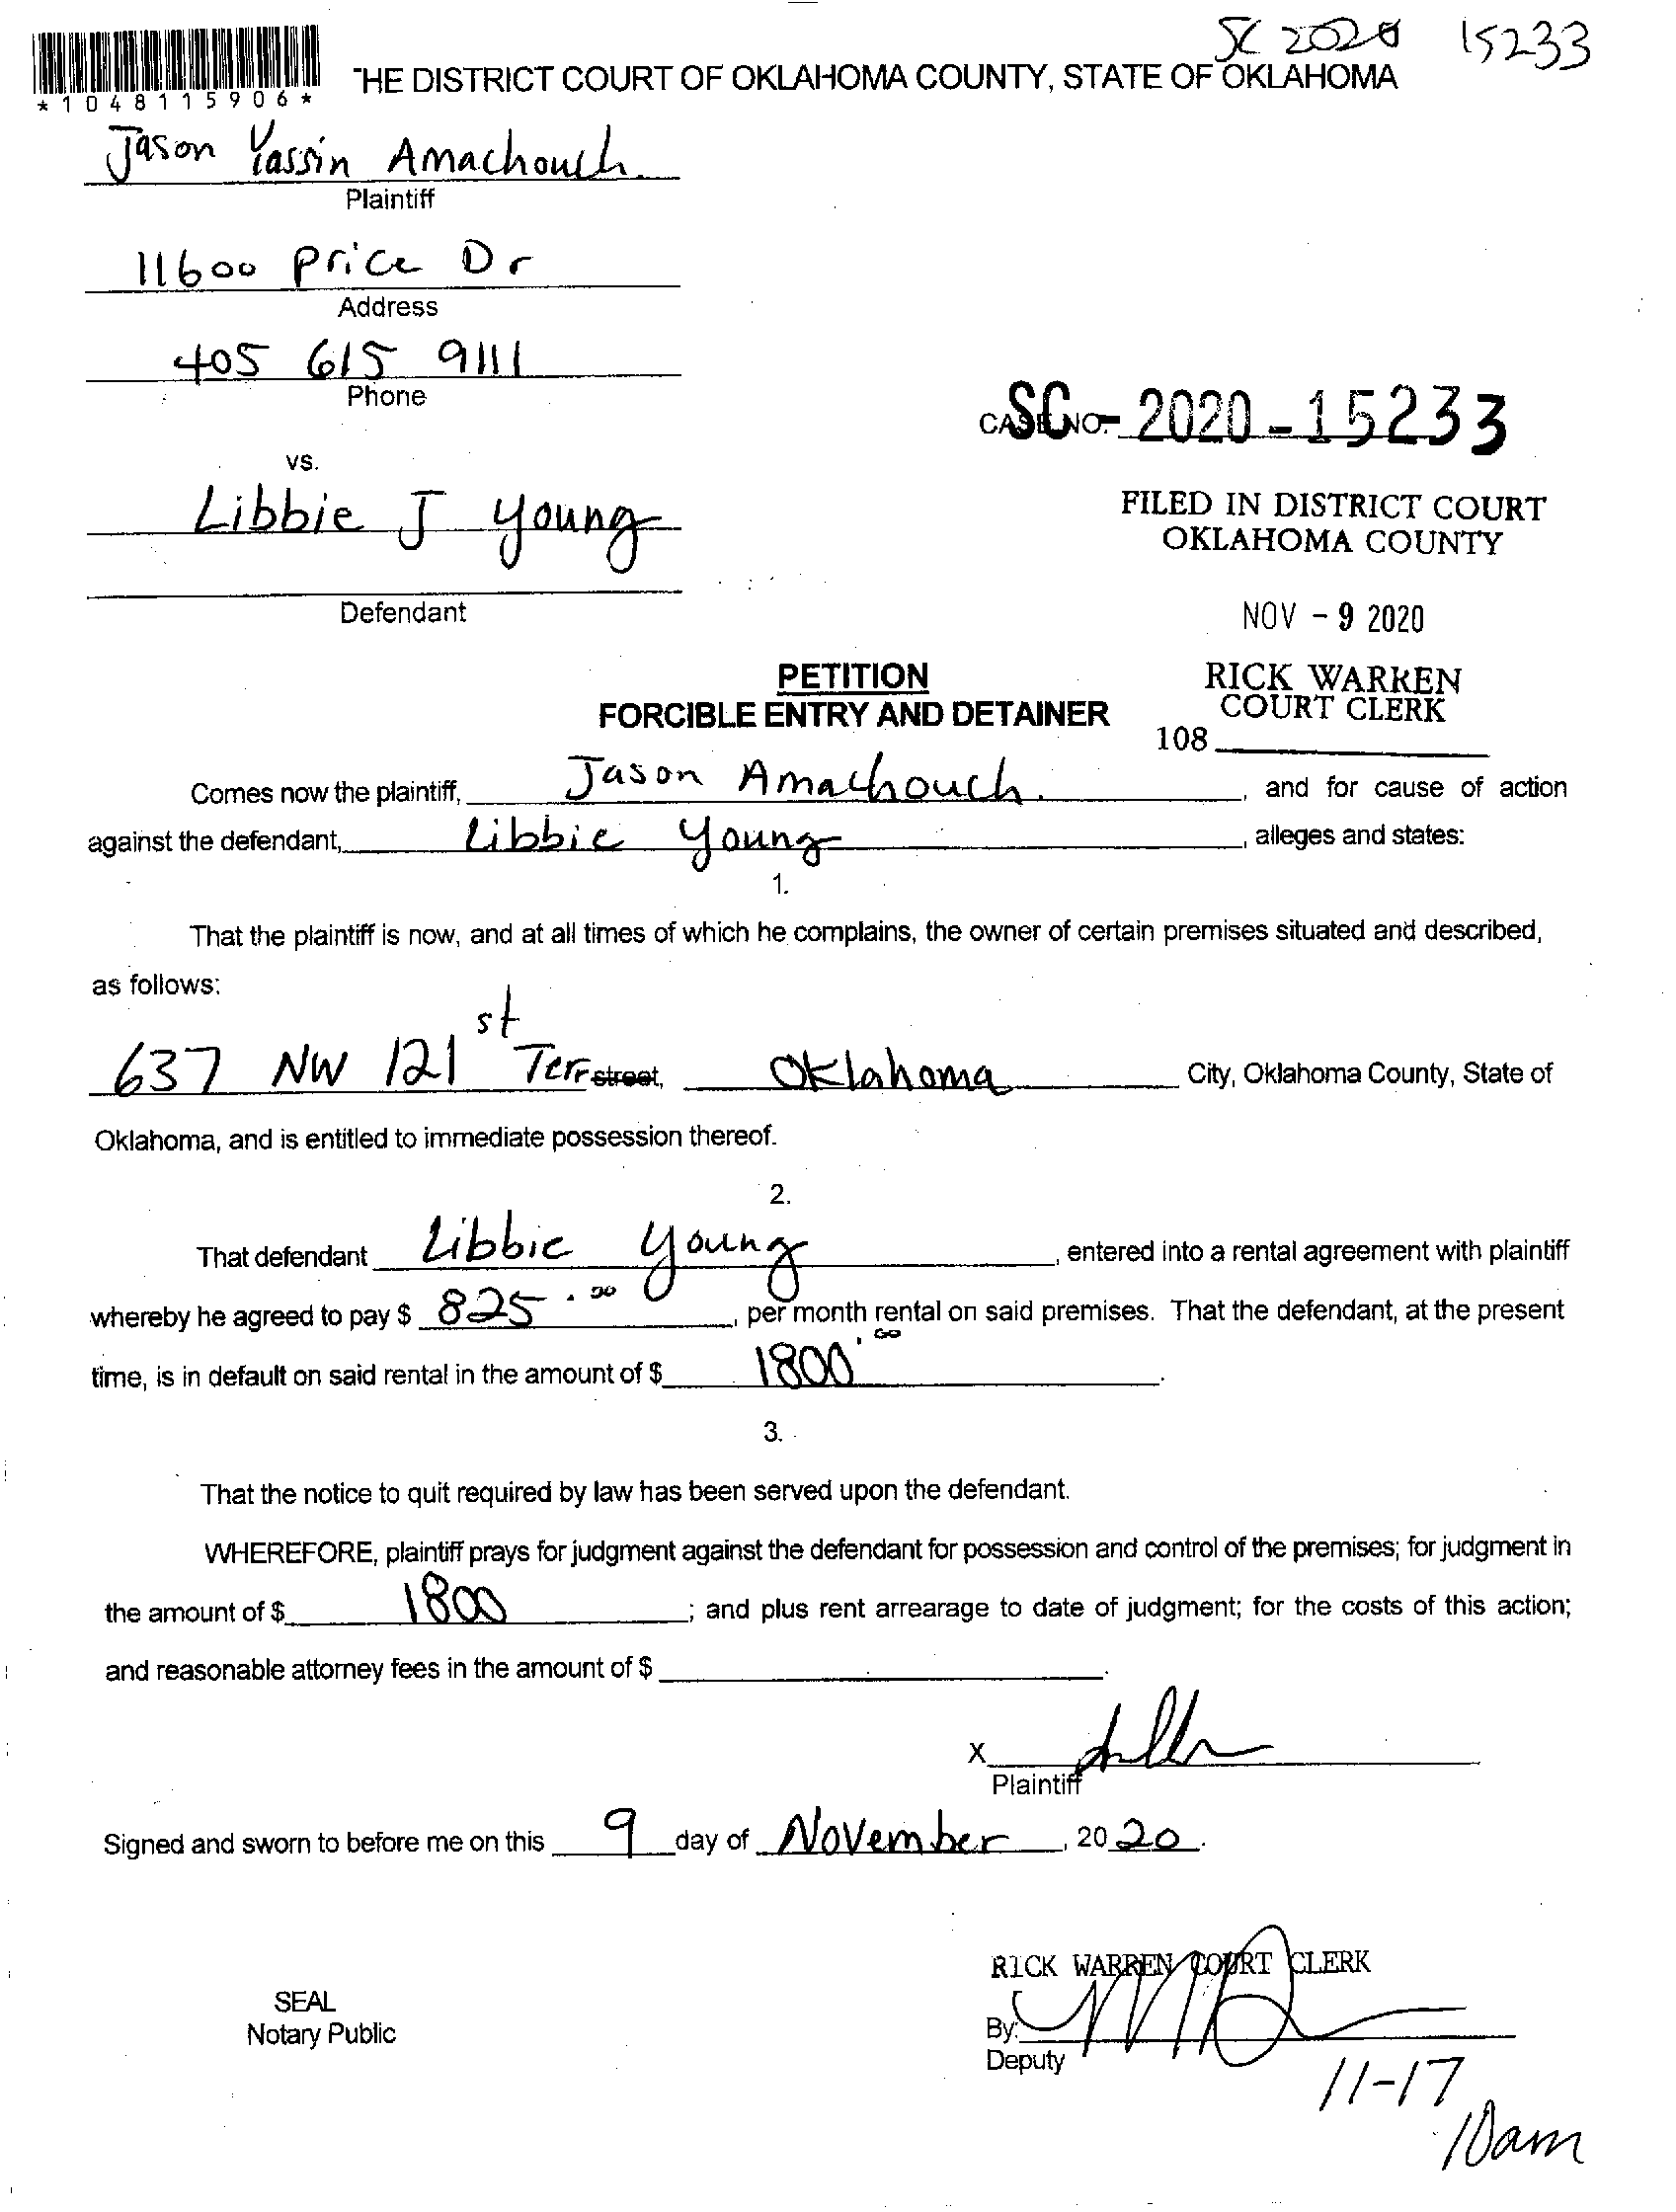 SC 2020 15233
*1048115906*
THE DISTRICT COURT OF OKLAHOMA COUNTY, STATE OF OKLAHOMA
Jason Yassin Amachouch
Plaintiff
11600 Price Dr
Address
405 615 9111
Phone
CASE NO. SC-2020-15233
vs.
Libbie J Young
FILED IN DISTRICT COURT
OKLAHOMA COUNTY
Defendant
NOV - 9 2020
PETITION
FORCIBLE ENTRY AND DETAINER
RICK WARREN
COURT CLERK
108
Comes now the plaintiff, Jason Amachouch, and for cause of action
against the defendant, Libbie Young, alleges and states:
1.
That the plaintiff is now, and at all times of which he complains, the owner of certain premises situated and described,
as follows:
637 NW 121st Terr street, Oklahoma City, Oklahoma County, State of
Oklahoma, and is entitled to immediate possession thereof.
2.
That defendant Libbie Young, entered into a rental agreement with plaintiff
whereby he agreed to pay $ 825.00, per month rental on said premises. That the defendant, at the present
time, is in default on said rental in the amount of $ 1800.00.
3.
That the notice to quit required by law has been served upon the defendant.
WHEREFORE, plaintiff prays for judgment against the defendant for possession and control of the premises; for judgment in
the amount of $ 1800; and plus rent arrearage to date of judgment; for the costs of this action;
and reasonable attorney fees in the amount of $
X
Plaintiff
Signed and sworn to before me on this 9 day of November, 2020.
RICK WARREN COURT CLERK
SEAL
Notary Public
By:
Deputy
11-17
10am